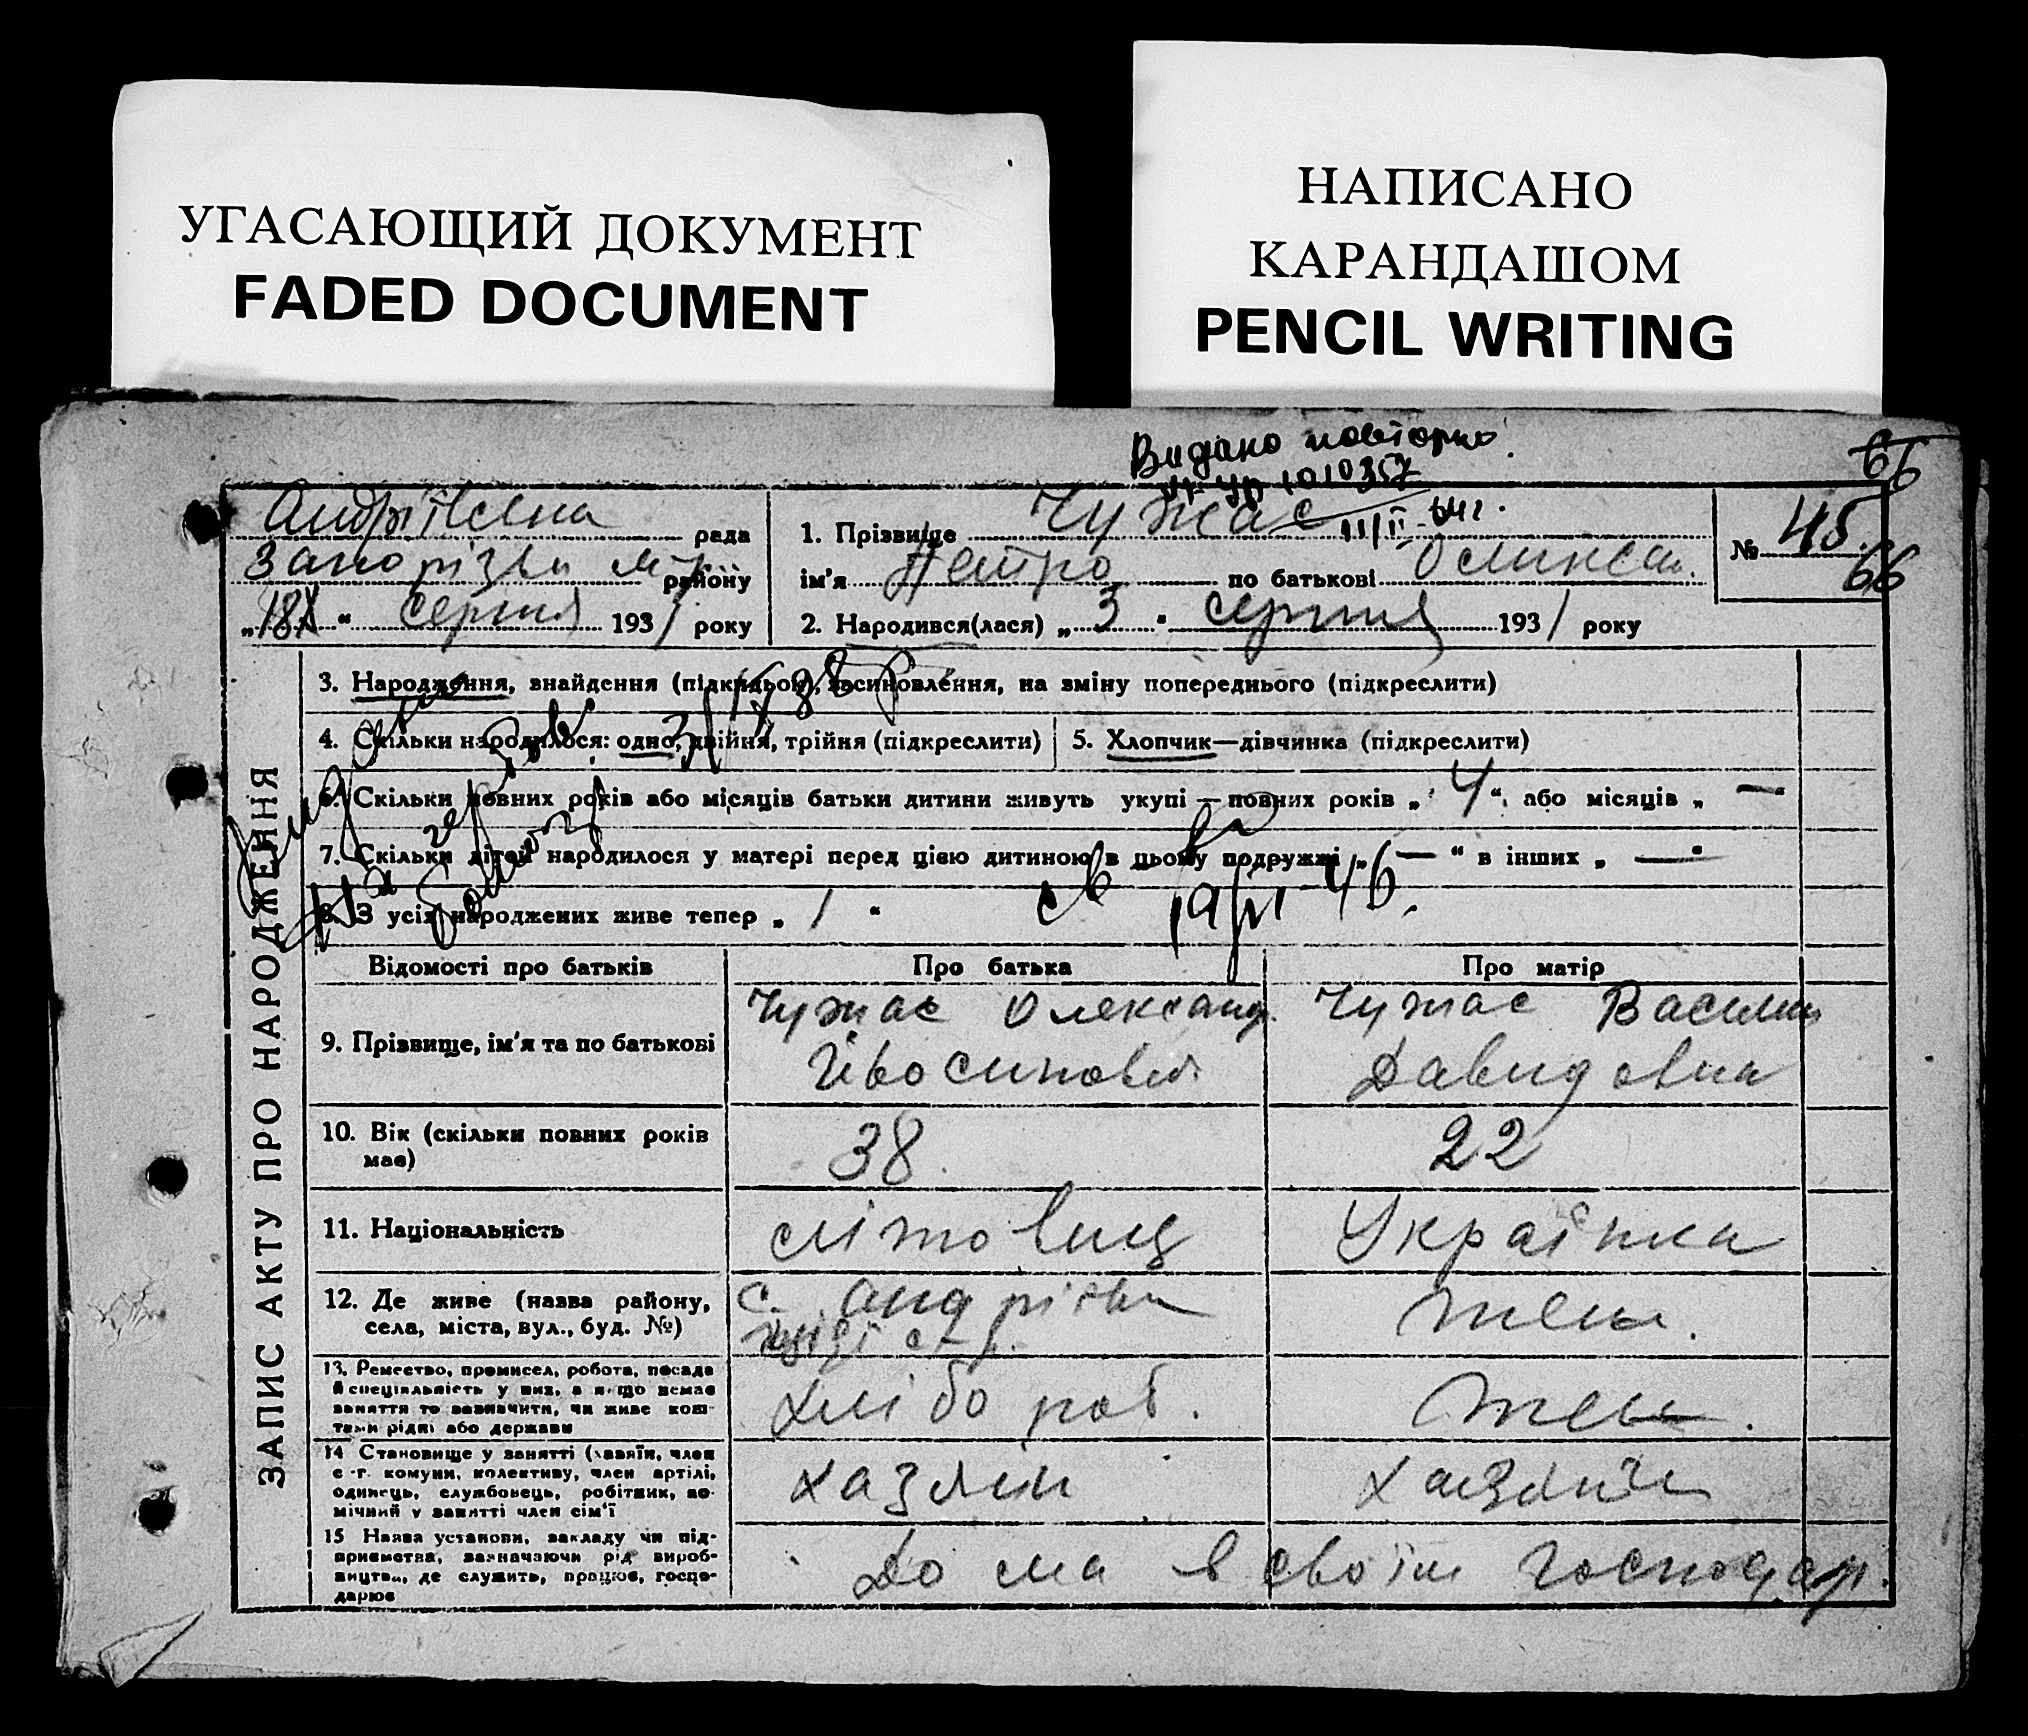 УГАСАЮЩИЙ ДОКУМЕНТ
FADED DOCUMENT
НАПИСАНО
КАРАНДАШОМ
PENCIL WRITING
Видано повторно
1010357
11/II-64г.
66
Андріївська рада
Запорізьк району
"18" серпня 1931 року
1. Прізвище Чужас
ім'я Петро по батькові
2. Народився(лася) „3" серпня 1931 року
№ 45
66
ЗАПИС АКТУ ПРО НАРОДЖЕННЯ
3. Народження, знайдення (підкидьок), усиновлення, на зміну попереднього (підкреслити)
4. Скільки народилося: одно, двійня, трійня (підкреслити)
5. Хлопчик—дівчинка (підкреслити)
6. Скільки повних років або місяців батьки дитини живуть укупі — повних років „4", або місяців „—"
7. Скільки дітей народилося у матері перед цією дитиною в цьому подружжі „—" в інших „—"
8. З усіх народжених живе тепер „1"
19/VI 46.
Відомості про батьків Про батька Про матір
9. Прізвище, ім'я та по батькові
Чужас Олександ.
Чужас Василис
Давидовна
10. Вік (скільки повних років має)
38
22
11. Національність
літовиц
Українка
12. Де живе (назва району, села, міста, вул., буд. №)
с. Андріївка
13. Ремество, промисел, робота, посада й спеціяльність у них, а якщо немає заняття то зазначити, чи живе коштами рідні або держави
хлібороб.
14 Становище у занятті (хазяїн, член с.-г. комуни, колективу, член артілі, одинець, службовець, робітник, помічний у занятті член сім'ї
хазяїн
хазяїн
15 Назва установи, закладу чи підприємства, зазначаючи рід виробництва, де служить, працює, господарює
Дома в своїм господар.